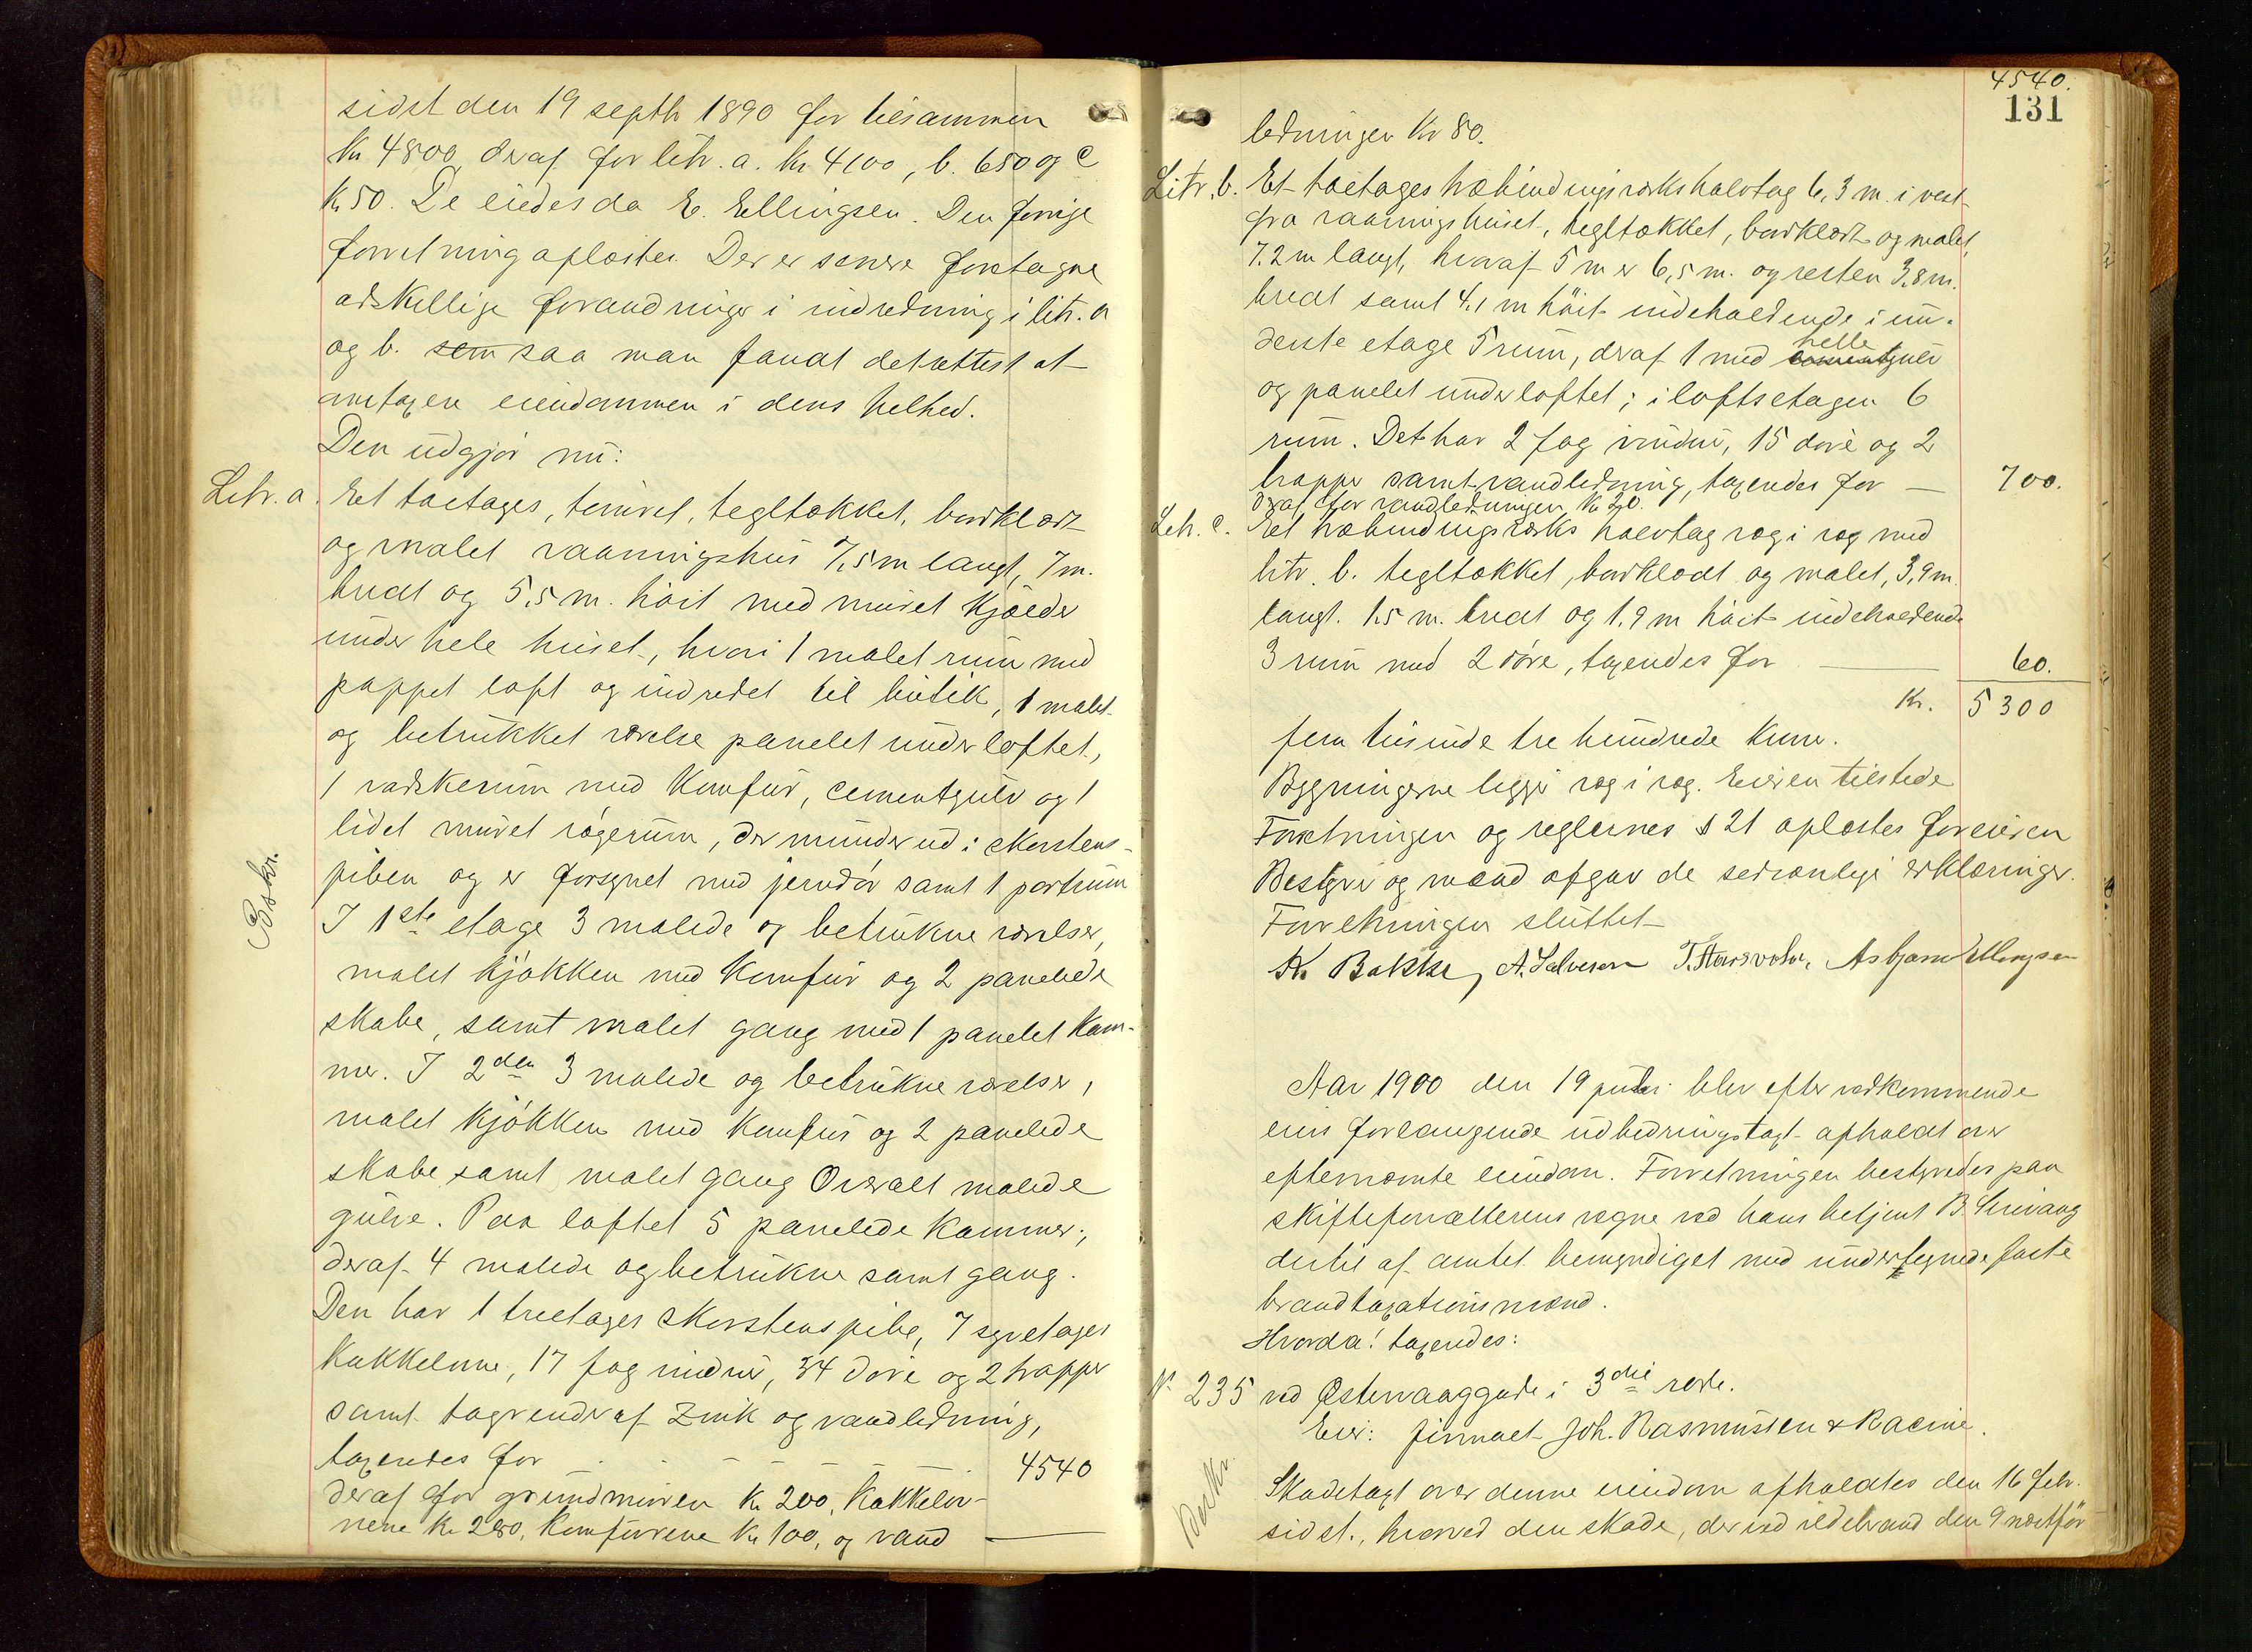 sidst den 19 septbr 1890 for tilsammen
Kr 4800, deraf for litr. a. Kr 4100, b. 650 og c
Kr 50. De eiedes da E. Ellingsen. Den forrige
forretning oplæstes. Der er senere foretagne
adskellige forandringer i indredning i litr. a
og b. som saa man fandt det rettest at
omtaxere eiendommen i dens helhed.
Den udgjør nu:
Litr. a. Et toetages, tømret, tegltækket, bordklædt
og malet vaaningshus 7,5 m langt, 7 m.
bredt og 5,5 m. høit med muret kjælder
under hele huset, hvori 1 malet rum med
pappet loft og indredet til butik, 1 malet
og betrukket værelse panelet under loftet,
1 vaskerum med komfur, cementgulv og 1
lidet muret røgerum, der munder ud i skorstens-
piben og er forsynet med jerndør samt 1 portrum
I 1ste etage 3 malede og betrukne værelser,
malet kjøkken med komfur og 2 panelede
skabe, samt malet gang med 1 panelet kam-
mer. I 2den 3 malede og betrukne værelser,
malet kjøkken med komfur og 2 panelede
skabe samt malet gang Overalt malede
gulve. Paa loftet 5 panelede kammer;
deraf 4 malede og betrukne samt gang.
Den har 1 treetages skorstenspibe, 7 syvetages
kakkelovne, 17 fag vinduer, 34 døre og 2 trapper
samt tagrender af zink og vandledning,
taxeredes for 4540
deraf for grundmuren Kr 200, kakkelov-
nene Kr 280, komfurene Kr 100, og vand
Bskr.
4540.
131
ledningen Kr 80.
Litr. b. Et toetages træbindingsværks halvtag 6,3 m. i vest
fra vaaningshuset, tegltækket, bordklædt og malet,
7.2 m langt, hvoraf 5 m er 6,5 m. og resten 3,8 m.
bredt samt 4,1 m høit indeholdende i un-
derste etage 5 rum, deraf 1 med helle cementgulv
og panelet under loftet; i loftsetagen 6
rum. Det har 2 fag vinduer, 15 døre og 2
trapper samt vandledning, taxeredes for 700.
deraf for vandledningen Kr 20.
Litr. c. Et træbindingsværks halvtag væg i væg med
litr. b. tegltækket, bordklædt og malet, 3,9 m.
langt. 1,5 m. bredt og 1,9 m høit indeholdende
3 rum med 2 døre, taxeredes for 60.
Kr. 5300
fem tusinde tre hundrede kroner.
Bygningerne ligger væg i væg. Eieren tilstede
Forretningen og reglernes § 21 oplæstes for eieren
Bestyrer og mænd afgav de sedvanlige erklæringer.
Forretningen sluttet
Kr. Bakke, A. Salvesen Asbjørn Ellingsen
Aar 1900 den 19 juli blev efter vedkommende
eiers forlangende udbedringstaxt afholdt over
efternævnte eiendom. Forretningen bestyredes paa
skifteforvalterens vegne ved hans betjent B.
dertil af amtet bemyndiget med undertegnede faste
brandtaxationsmænd.
Hvorda! taxeredes:
No 235 ved Østervaaggade i 3die rode.
Eier: firmaet Joh. Rasmussen & Racine.
Bskr.
Skadetaxt over denne eiendom afholdtes den 16 febr.
sidst., hvorved den skade, der ved ildebrand den 9 næstfør